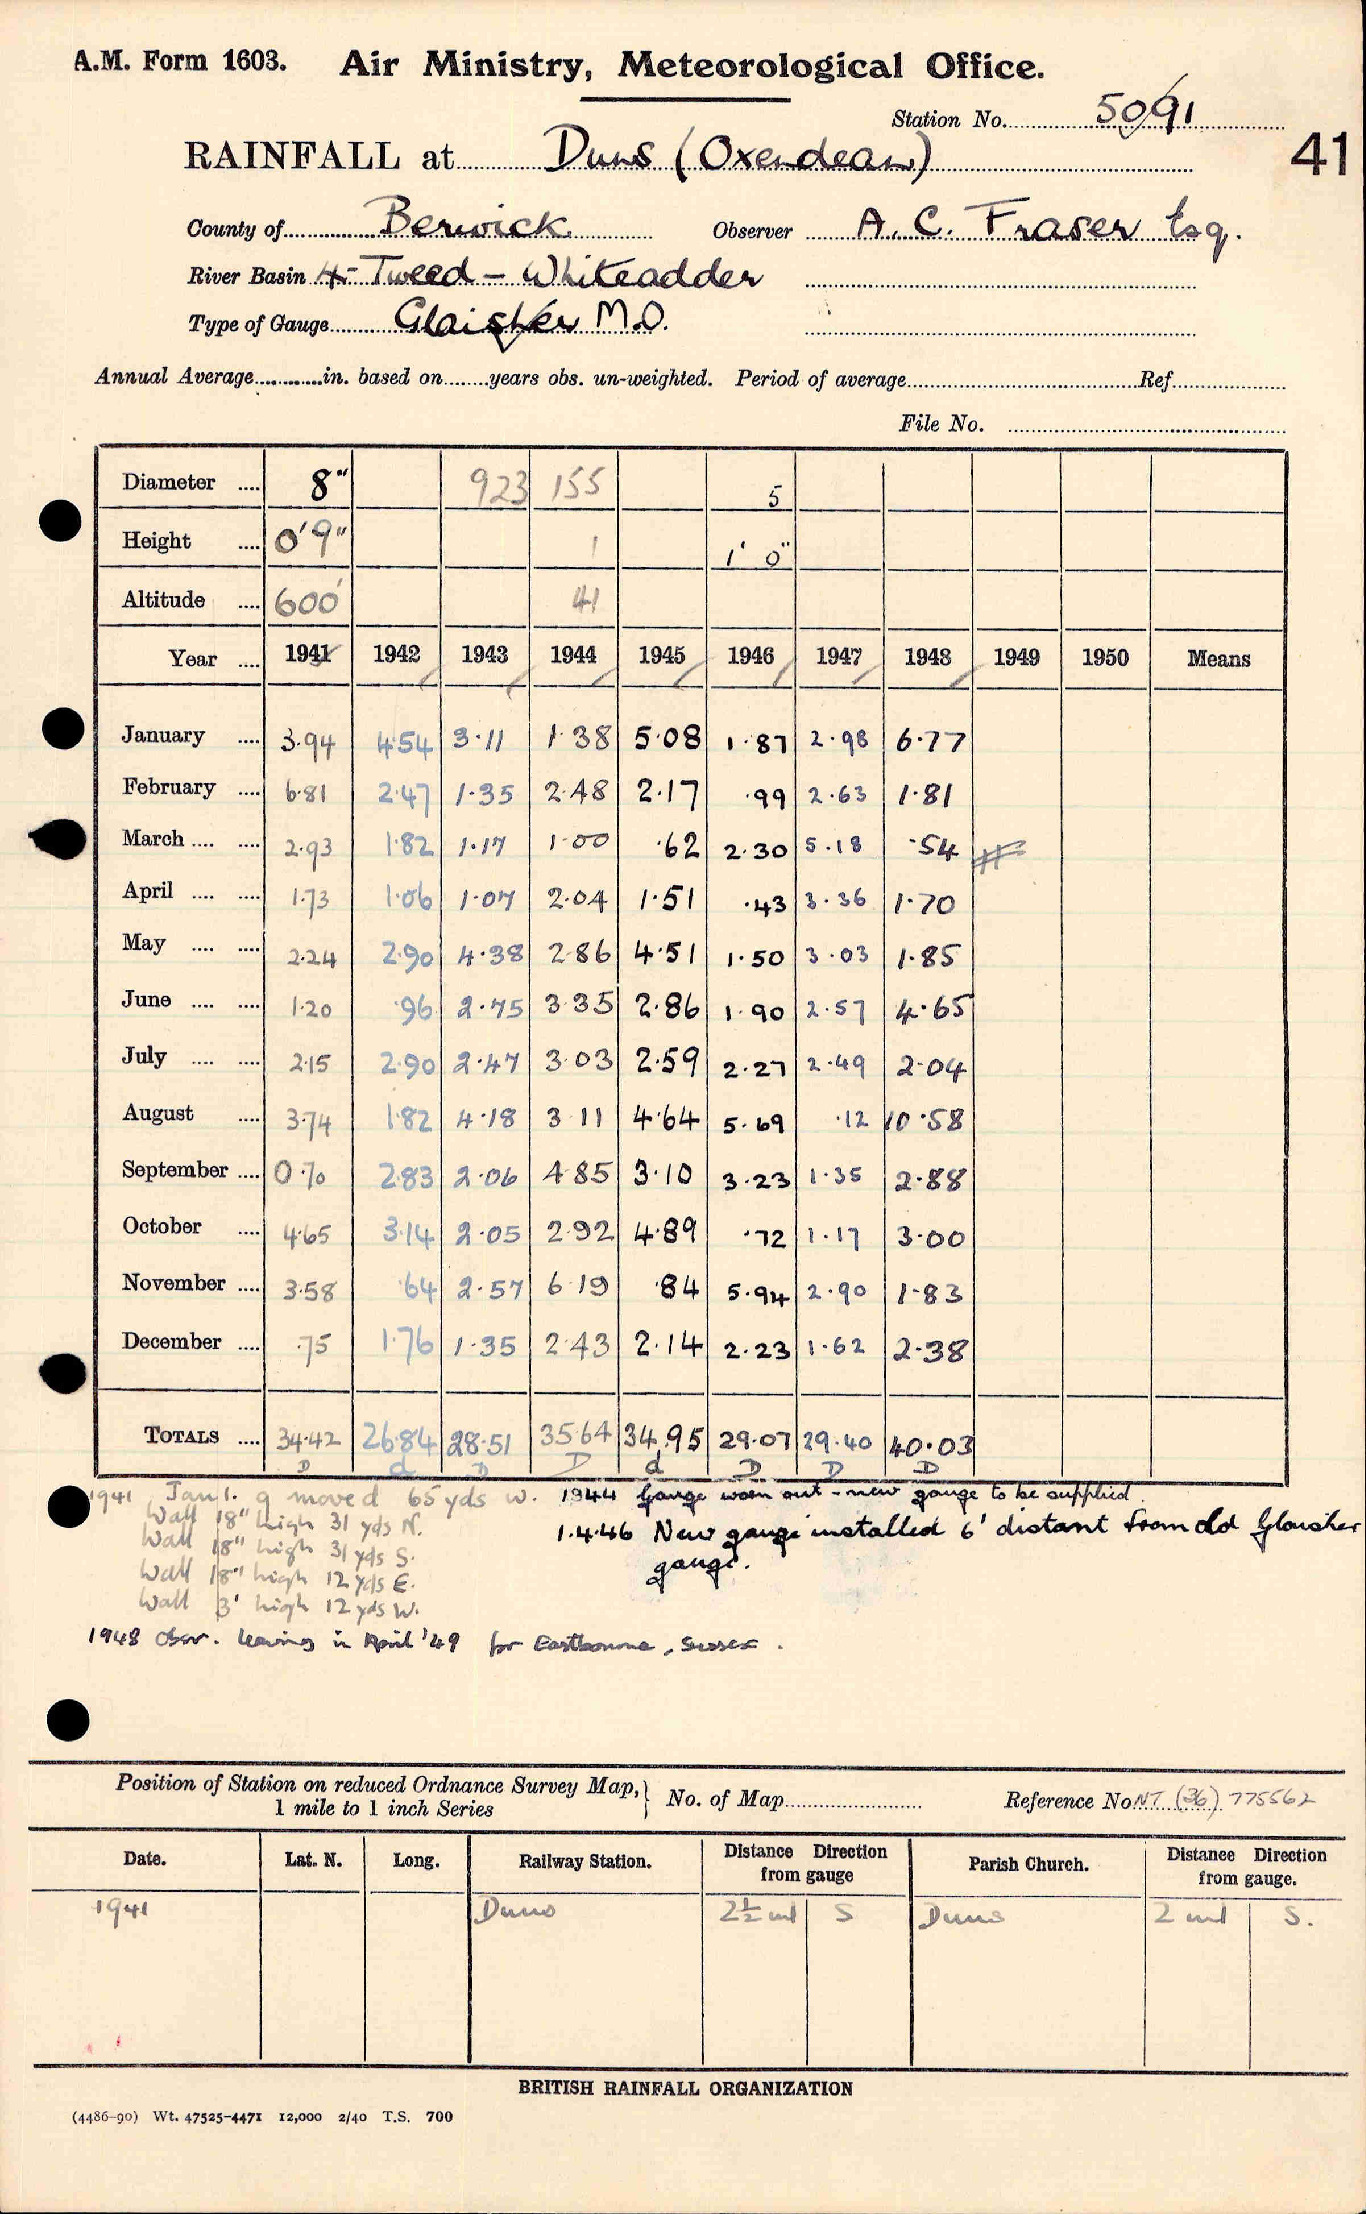 A.M. Form 1603. Air Ministry, Meteorological Office.
Station No. 5091
41
RAINFALL at Duns (Oxendean)
County of Berwick Observer A. C. Fraser Esq.
River Basin 4 - Tweed - Whiteadder
Type of Gauge Glaisher M.O.
Annual Average in. based on years obs. un-weighted. Period of average Ref
File No.
Diameter 8" 923 155 5
Height 0'9" 1 1' 0"
Altitude 600' 41
Year 1941 1942 1943 1944 1945 1946 1947 1948 1949 1950 Means
January 3.94 4.54 3.11 1.38 5.08 1.87 2.98 6.77
February 6.81 2.47 1.35 2.48 2.17 .99 2.63 1.81
March 2.93 1.82 1.17 1.00 .62 2.30 5.18 .54
April 1.73 1.06 1.07 2.04 1.51 .43 3.36 1.70
May 2.24 2.90 4.38 2.86 4.51 1.50 3.03 1.85
June 1.20 .96 2.75 3.35 2.86 1.90 2.57 4.65
July 2.15 2.90 2.47 3.03 2.59 2.27 2.49 2.04
August 3.74 1.82 4.18 3.11 4.64 5.69 .12 10.58
September 0.70 2.83 2.06 4.85 3.10 3.23 1.35 2.88
October 4.65 3.14 2.05 2.92 4.89 .72 1.17 3.00
November 3.58 .64 2.57 6.19 .84 5.94 2.90 1.83
December .75 1.76 1.35 2.43 2.14 2.23 1.62 2.38
TOTALS 34.42 26.84 28.51 35.64 34.95 29.07 29.40 40.03
D d D D d D D D
1941 Jan 1. g moved 65 yds W. 1944 Gauge worn out - new gauge to be supplied
Wall 18" high 31 yds N. 1.4.46 New gauge installed 6' distant from old Glaisher
Wall 18" high 31 yds S. gauge.
Wall 18" high 12 yds E.
Wall 3' high 12 yds W.
1948 Obsr. leaving in April '49 for Eastbourne, Sussex.
Position of Station on reduced Ordnance Survey Map, 1 mile to 1 inch Series } No. of Map Reference No NT (36) 775562
Date. Lat. N. Long. Railway Station. Distance Direction from gauge Parish Church. Distance Direction from gauge.
1941 Duns 2½ ml S Duns 2 ml S.
BRITISH RAINFALL ORGANIZATION
(4486-90) Wt. 47525-4471 12,000 2/40 T.S. 700